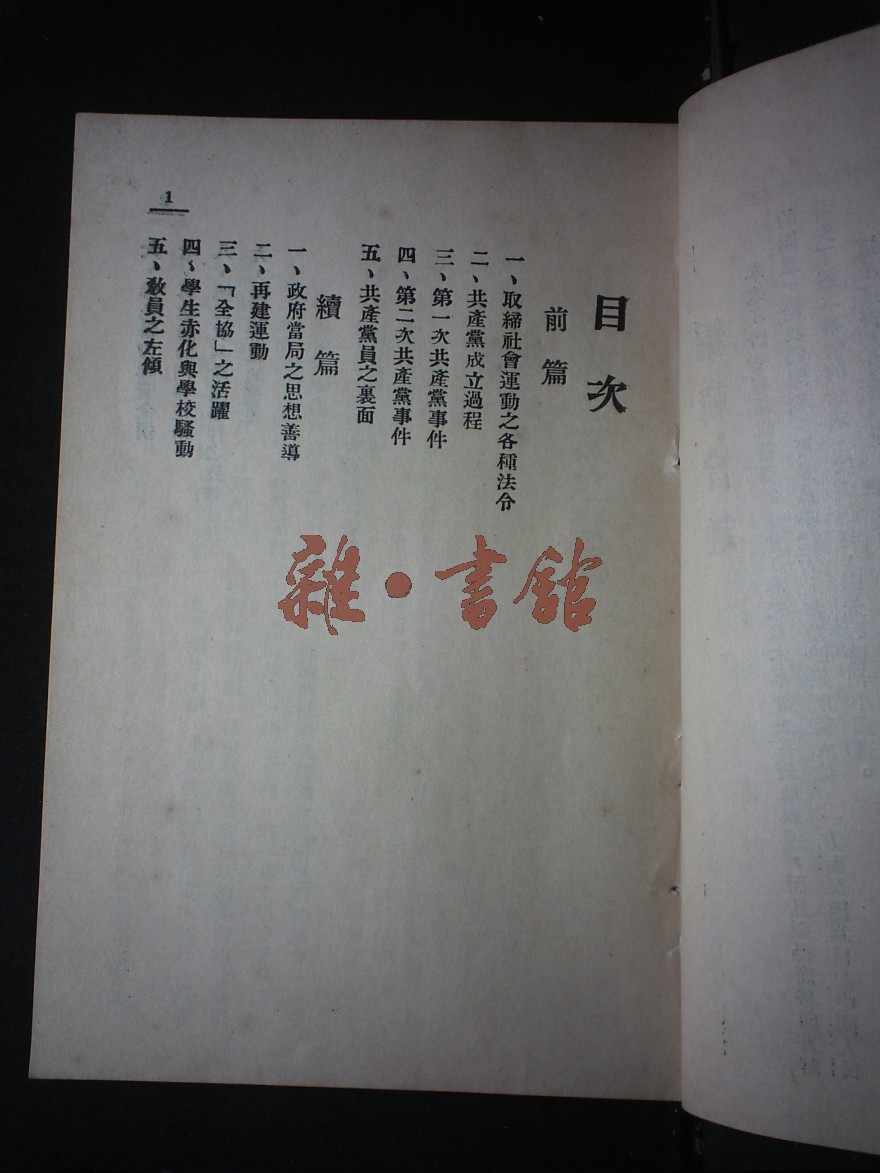 目次
前篇
一、取締社會運動之各種法令
二、共產黨成立過程
三、第一次共產黨事件
四、第二次共產黨事件
五、共產黨員之裏面
續篇
一、政府當局之思想善導
二、再建運動
三、「全協」之活躍
四、學生赤化與學校騷動
五、敎員之左傾
1
雜·書館